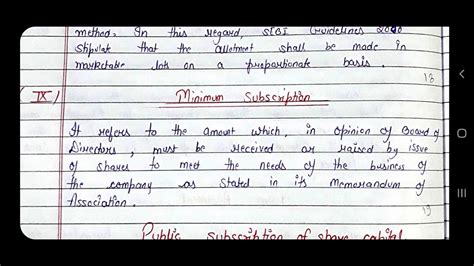 method. In this regard, SEBI Guidelines 2000
Stipulate that the allotment shall be made in
marketable lots on a proportionate basis.
18
IX)
Minimum Subscription
It refers to the amount which, in opinion of Board of
Directors, must be received or raised by issue
of shares to meet the needs of the business of
the company as stated in its Memorandum of
Association.
19
Public subscription of share capital